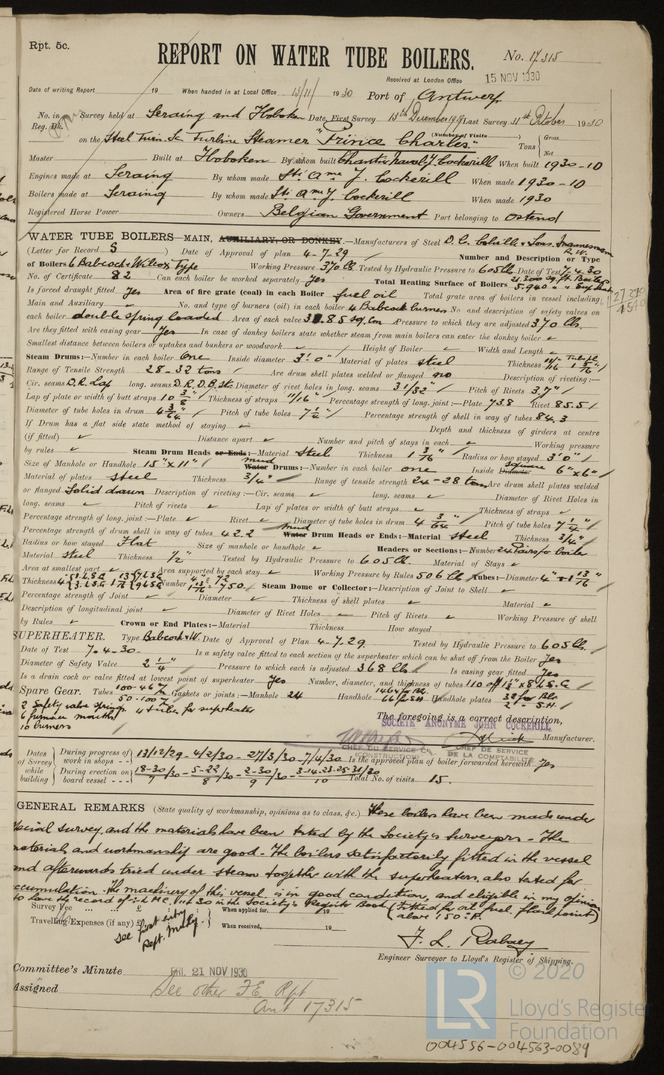 Rpt. 5c.
REPORT ON WATER TUBE BOILERS.
No. 17315
Received at London Office 15 NOV 1930
Date of writing Report 19 When handed in at Local Office 13/11/ 1930 Port of Antwerp
No. in Reg. Bk. Survey held at Seraing and Hoboken Date, First Survey 13th December 1929 Last Survey 31st October 1930
(Number of Visits
on the Steel Twin Sc Turbine Steamer "Prince Charles" Tons Gross Net
Master Built at Hoboken By whom built Chantier naval J. Cockerill When built 1930-10
Engines made at Seraing By whom made Sté Ame J. Cockerill When made 1930-10
Boilers made at Seraing By whom made Sté Ame J. Cockerill When made 1930
Registered Horse Power Owners Belgian Government Port belonging to Ostend
WATER TUBE BOILERS—MAIN, AUXILIARY, OR DONKEY.—Manufacturers of Steel D. Colville & Sons, Mannesmann
(Letter for Record S ) Date of Approval of plan 4-7-29 Number and Description or Type
of Boilers 6 Babcock & Wilcox Type Working Pressure 370 lb Tested by Hydraulic Pressure to 605 lb Date of Test 7.4.30
No. of Certificate 82 Can each boiler be worked separately yes Total Heating Surface of Boilers
Is forced draught fitted yes Area of fire grate (coal) in each Boiler fuel oil Total grate area of boilers in vessel including
Main and Auxiliary No. and type of burners (oil) in each boiler 4 Babcock burners No and description of safety valves on
each boiler double spring loaded Area of each valve Pressure to which they are adjusted 370 lb.
Are they fitted with easing gear Yes In case of donkey boilers state whether steam from main boilers can enter the donkey boiler
Smallest distance between boilers or uptakes and bunkers or woodwork Height of Boiler Width and Length
Steam Drums:—Number in each boiler One Inside diameter 3'.0" Material of plates steel Thickness
Range of Tensile Strength 28-32 tons Are drum shell plates welded or flanged no Description of riveting:—
Cir. seams D.R. Lap long. seams D.R. D.B. St. Diameter of rivet holes in long. seams 31/32" Pitch of Rivets 3.7"
Lap of plate or width of butt straps 10 3/8" Thickness of straps 11/16" Percentage strength of long. joint:—Plate 73.8 Rivet 85.5
Diameter of tube holes in drum 4 3/64" Pitch of tube holes 7 1/2" Percentage strength of shell in way of tubes 84.3
If Drum has a flat side state method of staying Depth and thickness of girders at centre
(if fitted) Distance apart Number and pitch of stays in each Working pressure
by rules Steam Drum Heads or Ends:—Material Steel Thickness Radius or how stayed 3'0"
Size of Manhole or Handhole 15" x 11" mud Water Drums:—Number in each boiler one Inside Square 6" x 6"
Material of plates steel Thickness 3/4" Range of tensile strength 24-28 ton Are drum shell plates welded
or flanged Solid drawn Description of riveting:—Cir. seams long. seams Diameter of Rivet Holes in
long. seams Pitch of rivets Lap of plates or width of butt straps Thickness of straps
Percentage strength of long. joint:—Plate Rivet Diameter of tube holes in drum 4 3/64 Pitch of tube holes 7 1/4"
Percentage strength of drum shell in way of tubes 42.2 mud Water Drum Heads or Ends:—Material Steel Thickness 3/4"
Radius or how stayed Flat Size of manhole or handhole Headers or Sections:—Number
Material steel Thickness 1/2" Tested by Hydraulic Pressure to 605 lb. Material of Stays
Area at smallest part Area supported by each stay Working Pressure by Rules 506 lb Tubes:—Diameter
Thickness Number Steam Dome or Collector:—Description of Joint to Shell
Percentage strength of Joint Diameter Thickness of shell plates Material
Description of longitudinal joint Diameter of Rivet Holes Pitch of Rivets Working Pressure of shell
by Rules Crown or End Plates:—Material Thickness How stayed
SUPERHEATER. Type Babcock & W. Date of Approval of Plan 4-7-29 Tested by Hydraulic Pressure to 605 lb.
Date of Test 7-4-30 Is a safety valve fitted to each section of the superheater which can be shut off from the Boiler yes
Diameter of Safety Valve 2 1/4" Pressure to which each is adjusted 368 lb. Is easing gear fitted yes
Is a drain cock or valve fitted at lowest point of superheater yes Number, diameter, and thickness of tubes
Spare Gear. Tubes Gaskets or joints:—Manhole 24 Handhole Handhole plates
2 Safety valve springs
10 burners
The foregoing is a correct description,
SOCIÉTÉ ANONYME JOHN COCKERILL
Manufacturer.
CHEF DU SERVICE
CONSTRUCTION
CHEF DE SERVICE
DE LA COMPTABILITÉ
Dates of Survey while building
During progress of work in shops - - 13/12/29 - 4/2/30 - 27/3/30 - 7/4/30 Is the approved plan of boiler forwarded herewith Yes
During erection on board vessel - - - Total No. of visits 15.
GENERAL REMARKS (State quality of workmanship, opinions as to class, &c.) These boilers have been made under
special survey, and the materials have been tested by the Society's Surveyors - The
materials and workmanship are good - The boilers satisfactorily fitted in the vessel
and afterwards tried under steam together with the superheaters, also tested for
accumulation - The machinery of this vessel is in good condition, and eligible in my opinion
to have the record of in the Society's Register Book (Fitted for oil fuel, flash point above 150° F.
Survey Fee ... ... £ When applied for, 19
Travelling Expenses (if any) £ When received, 19
See first entry Rept. Mchy.
F. L. Rabaey
Engineer Surveyor to Lloyd's Register of Shipping.
Committee's Minute FRI. 21 NOV 1930
Assigned See other F.E. Rpt
Ant 17315
LR © 2020
Lloyd's Register
Foundation
004556-004563-0089